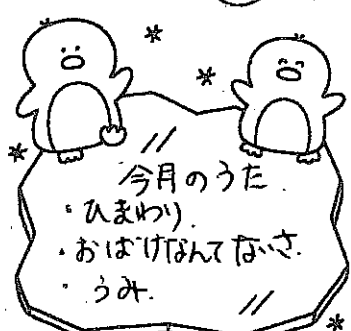 今月のうた.
・ひまわり.
・おばけなんてないさ.
・うみ.